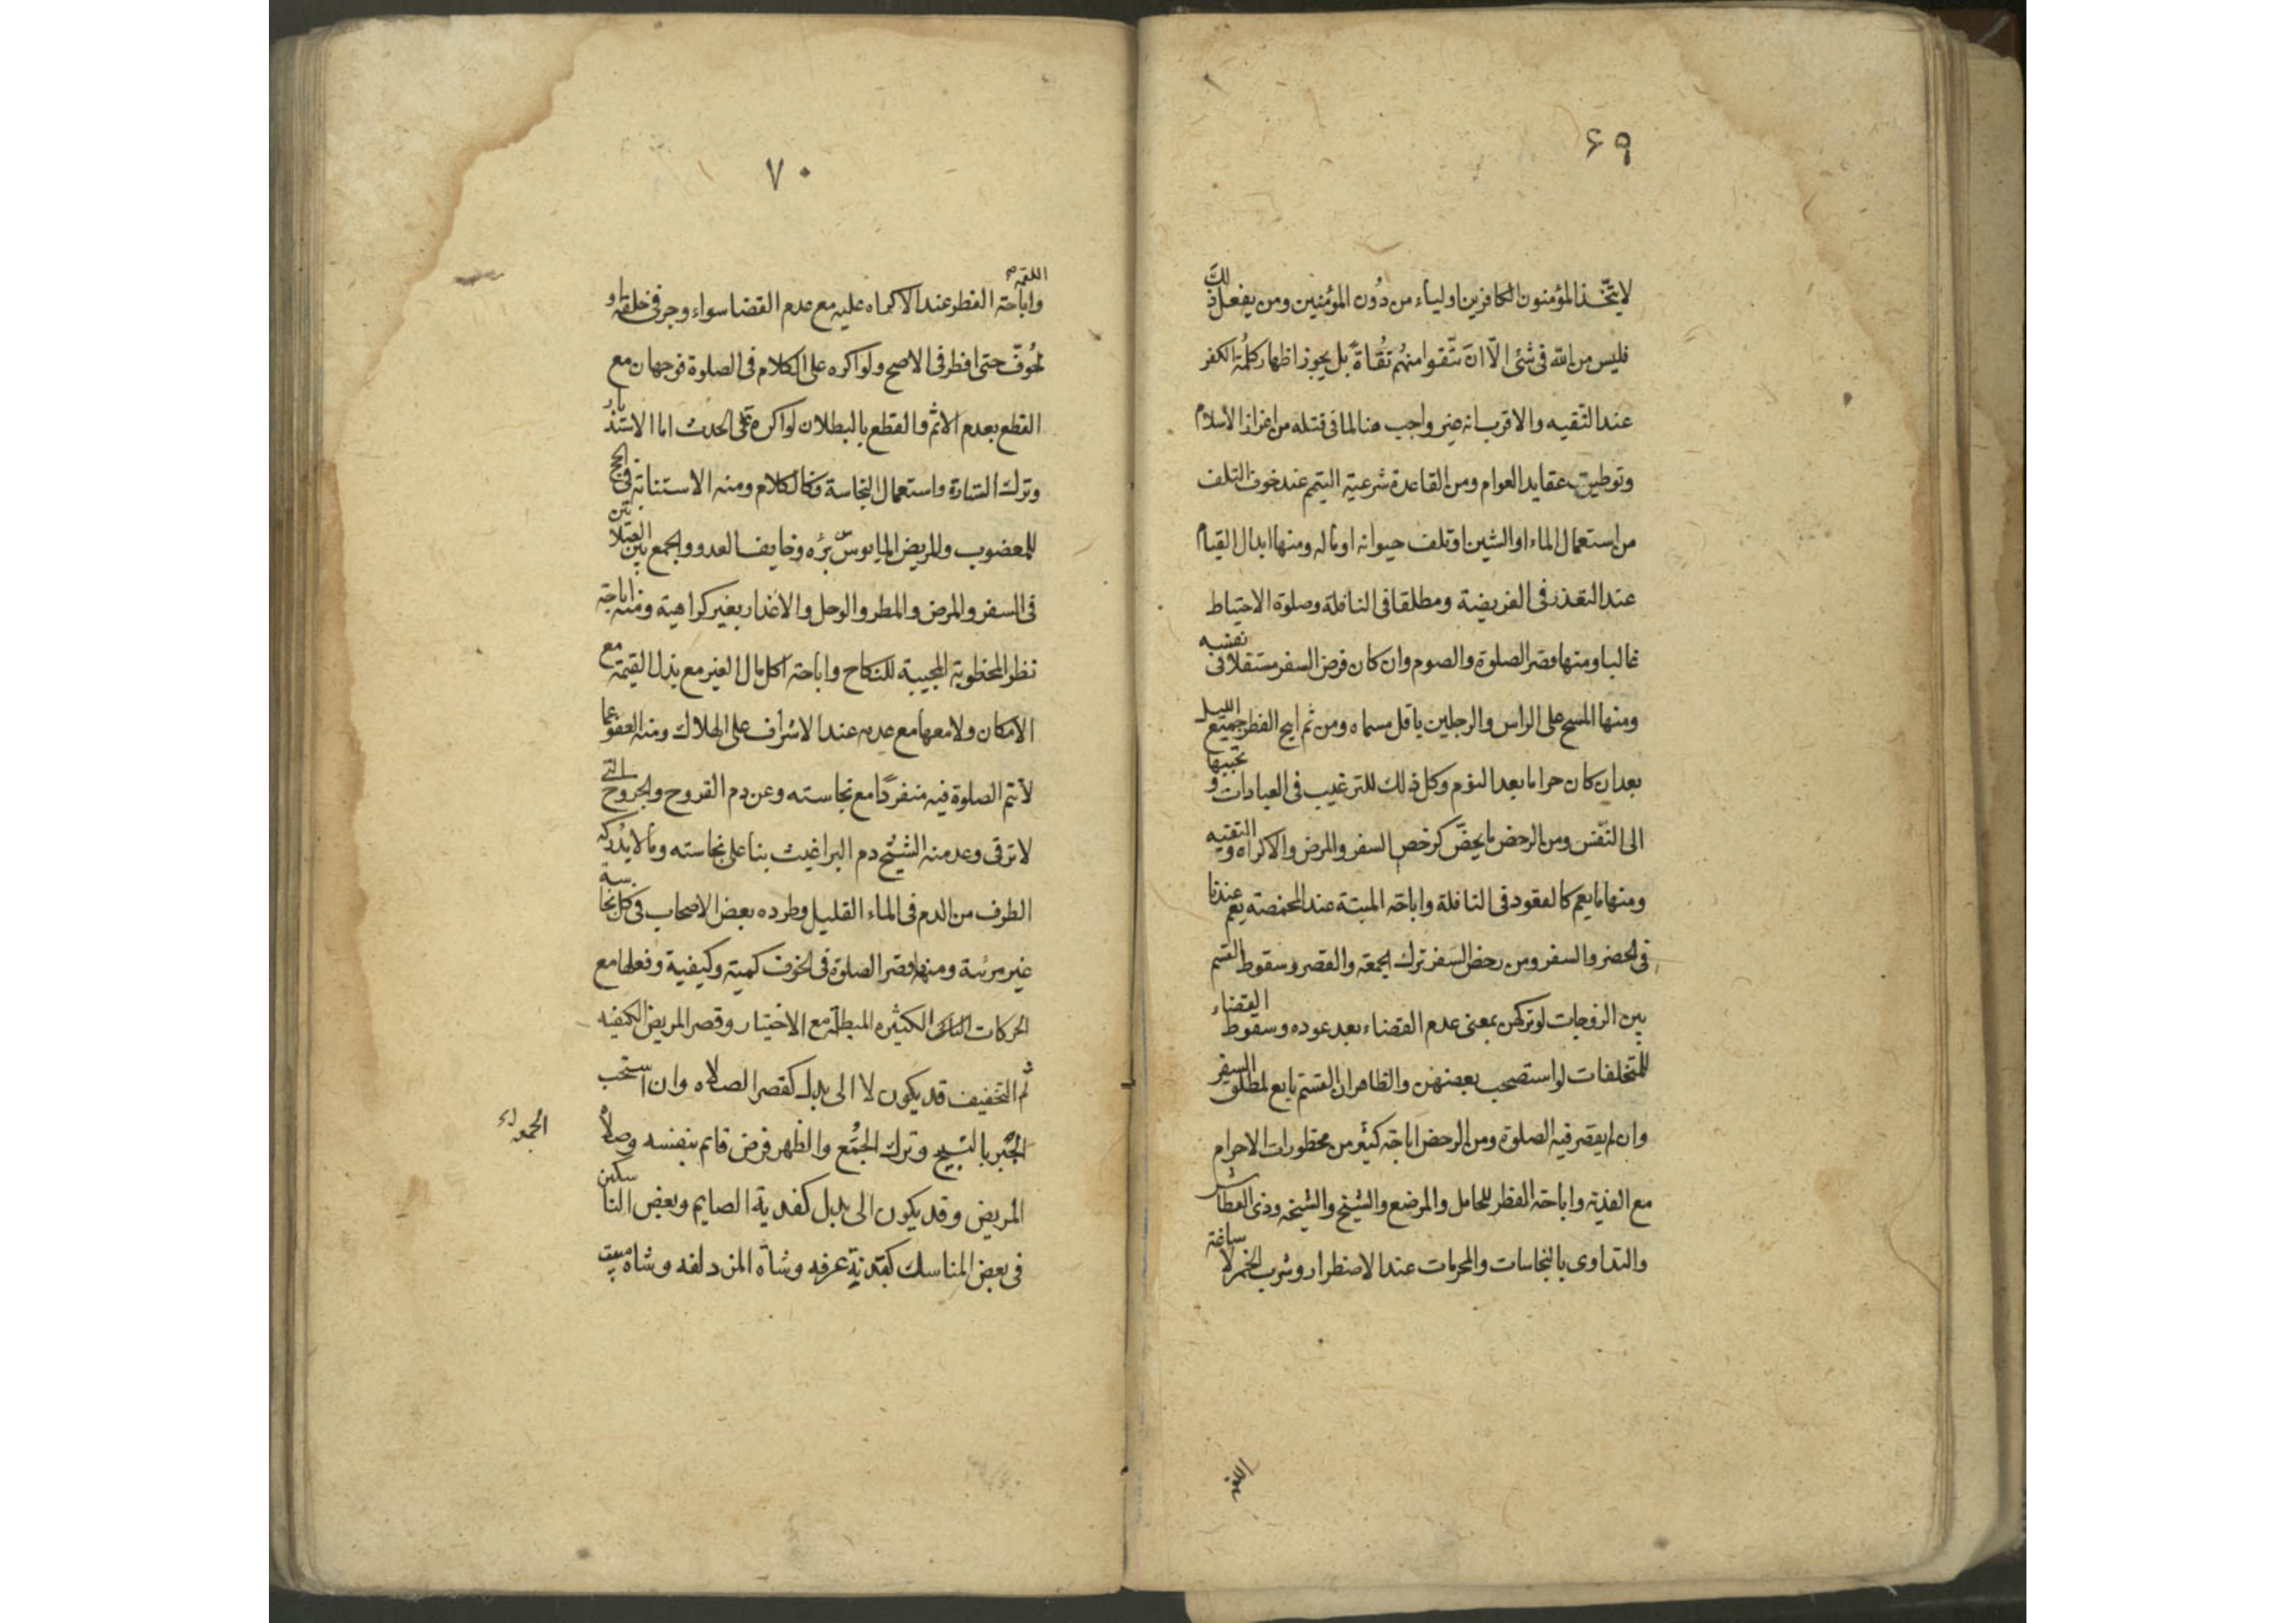 ۶۹
لا يتّخذ المؤمنون الكافرين اولياء من دُون المؤمنين ومن يفعل ذلك
فليس من الله فى شئ الّا ان تتّقوا منهُم تُقاةً بل يجوز اظهار كلمة الكفر
عند التّقيه والاقرب انه غير واجب هنا لما فى قتله من اعزاز الاسلام
وتوطين عقايد العوام ومن القاعدة شرعية التيمم عند خوف التلف
من استعمال الماء او الشين او تلف حيوانه او ماله ومنها ابدال القيام
عند التعذر فى الفريضة ومطلقا فى النافلة وصلوة الاحتياط
غالبا ومنها قصر الصلوة والصوم وان كان فرض السفر مستقلا فى نفسه
ومنها المسح على الراس والرجلين باقل مسماه ومن ثم ابيح الفطر جميع الليل
بعد ان كان حراما بعد النوم وكل ذلك للترغيب فى العبادات و تحبيبها
الى النّفس ومن الرخص ما يخصّ كرخص السفر والمرض والاكراه و التقيه
ومنها ما يعم كالقعود فى النافلة واباحة الميتة عند المخمصة يعم عندنا
فى الحضر والسفر ومن رخص السفر ترك الجمعة والقصر وسقوط القسم
بين الزوجات لو تركهن بمعنى عدم القضاء بعد عوده وسقوط القضاء
للمتخلفات لو استصحب بعضهن والظاهر ان القسم تابع لمطلق السفر
وان لم يقصر فيه الصلوة ومن الرخص اباحة كثير من محظورات الاحرام
مع الفدية واباحة الفطر للحامل والمرضع والشيخ والشيخه وذى العطاش
والتداوى بالنجاسات والمحرمات عند الاضطرار وشرب الخمر لا ساغة
اللقمة
۷۰
اللقمة
واباحة الفطر عند الاكراه عليه مع عدم القضا سواء وجر فى حلقه او
خُوّف حتى افطر فى الاصح ولو اكره على الكلام فى الصلوة فوجهان مع
القطع بعدم الاثم والقطع بالبطلان لو اكره على الحدث اما الاستدبار
وترك الستارة واستعمال النجاسة فكالكلام ومنه الاستنابة فى الحج
للمعضوب والمريض المايوس برُه وخايف العدو والجمع بين الصلاتين
فى السفر والمرض والمطر والوحل والاعذار بغير كراهية ومنه اباحة
نظر المخطوبة المجيبة للنكاح واباحة اكل مال الغير مع بذل القيمة مع
الامكان ولا معها مع عدمه عند الاشراف على الهلاك ومنه العفو عما
لا تتم الصلوة فيه منفردًا مع نجاسته وعن دم القروح والجروح التى
لا ترقى وعد منه الشيخ دم البراغيث بنا على نجاسته وما لا يدركه
الطرف من الدم فى الماء القليل وطرده بعض الاصحاب فى كل نجاسة
غير مرئية ومنها قصر الصلوة فى الخوف كمية وكيفية وفعلها مع
الحركات الكثيره المبطلة مع الاختيار وقصر المريض الكيفيه
ثم التخفيف قد يكون لا الى بدل كقصر الصلاه وان استحب
الجبر بالتسبيح وترك الجمُع والظهر فرض قايم بنفسه وصلاه
الجمعه
المريض وقد يكون الى بدل كفدية الصايم وبعض الناسكين
فى بعض المناسك كبدنة عرفه وشاة المزدلفه وشاه مبيت